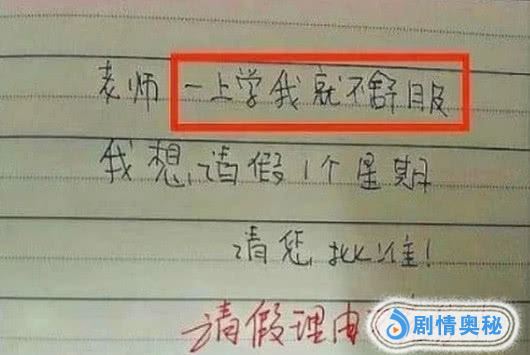 老师 一上学我就不舒服
我想请假1个星期
请您批准!
请假理由
剧情奥秘